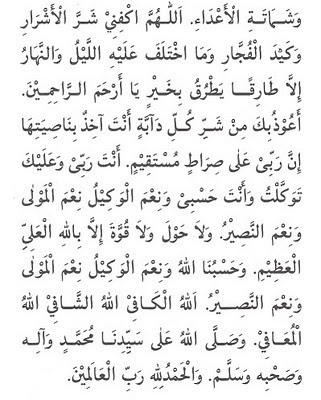 وَشَمَاتَةِ الْأَعْدَاءِ. اَللّٰهُمَّ اكْفِنِيْ شَرَّ الْأَشْرَارِ
وَكَيْدَ الْفُجَّارِ وَمَا اخْتَلَفَ عَلَيْهِ اللَّيْلُ وَالنَّهَارُ
إِلَّا طَارِقًا يَطْرُقُ بِخَيْرٍ يَا أَرْحَمَ الرَّاحِمِيْنَ.
أَعُوْذُبِكَ مِنْ شَرِّ كُلِّ دَآبَّةٍ أَنْتَ آخِذٌ بِنَاصِيَتِهَا
إِنَّ رَبِّيْ عَلٰى صِرَاطٍ مُسْتَقِيْمٍ. أَنْتَ رَبِّيْ وَعَلَيْكَ
تَوَكَّلْتُ وَأَنْتَ حَسْبِيْ وَنِعْمَ الْوَكِيْلُ نِعْمَ الْمَوْلٰى
وَنِعْمَ النَّصِيْرُ. وَلاَ حَوْلَ وَلاَ قُوَّةَ إِلَّا بِاللهِ الْعَلِيِّ
الْعَظِيْمِ. وَحَسْبُنَا اللهُ وَنِعْمَ الْوَكِيْلُ نِعْمَ الْمَوْلٰى
وَنِعْمَ النَّصِيْرُ. اَللهُ الْكَافِيْ اَللهُ الشَّافِيْ اَللهُ
الْمُعَافِيْ. وَصَلَّى اللهُ عَلٰى سَيِّدِنَا مُحَمَّدٍ وَآلِهِ
وَصَحْبِهِ وَسَلَّمْ. وَالْحَمْدُلِلّٰهِ رَبِّ الْعَالَمِيْنَ.